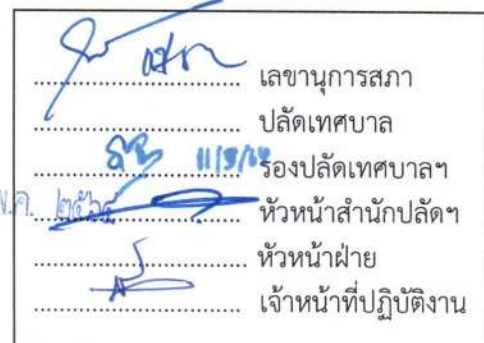 ........................ เลขานุการสภา
........................ ปลัดเทศบาล
........................ 11/5/64 รองปลัดเทศบาลฯ
........................ หัวหน้าสำนักปลัดฯ
........................ หัวหน้าฝ่าย
........................ เจ้าหน้าที่ปฏิบัติงาน